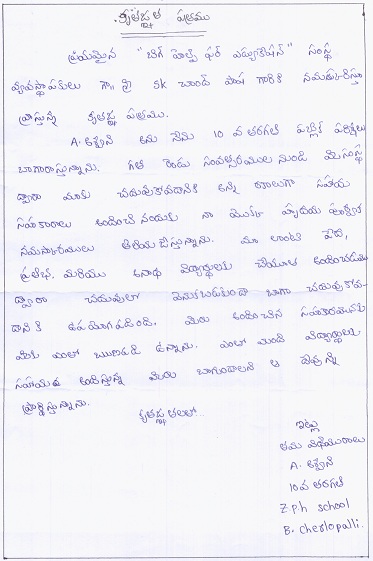 కృతజ్ఞత పత్రము
ప్రియమైన "బిగ్ హెల్ప్ ఫర్ ఎడ్యుకేషన్" సంస్థ
వ్యవస్థాపకులు గౌ|| శ్రీ Sk చాంద్ పాష గారికి నమస్కరిస్తూ
వ్రాస్తున్న కృతజ్ఞ పత్రము.
A. అశ్విని అను నేను 10 వ తరగతి పబ్లిక్ పరీక్షలు
బాగారాస్తున్నాను. గత రెండు సంవత్సరముల నుండి మీసంస్థ
ద్వారా మాకు చదువుకోవడానికి అన్ని రకాలుగా సహాయ
సహకారాలు అందించినందుకు నా యొక్క హృదయ పూర్వక
నమస్కారములు తెలియజేస్తున్నాను. మా లాంటి పేద,
ప్రతిభ, మరియు అనాథ విద్యార్థులకు చేయూత అందించడము
ద్వారా చదువులో వెనుకబడకుండా బాగా చదువుకోవ-
డానికి ఉపయోగపడింది. మీరు అందించిన సహకారమునకు
మీకు ఎంతో ఋణపడి ఉన్నాను. ఎంతో మంది విద్యార్థులకు
సహాయత అందిస్తున్న మీరు బాగుండాలని ఆ దేవున్ని
ప్రార్థిస్తున్నాను.
కృతజ్ఞతలతో...
ఇట్లు
తమ విధేయురాలు
A. అశ్విని
10వ తరగతి
Z.P.h school
B. Cherlopalli.